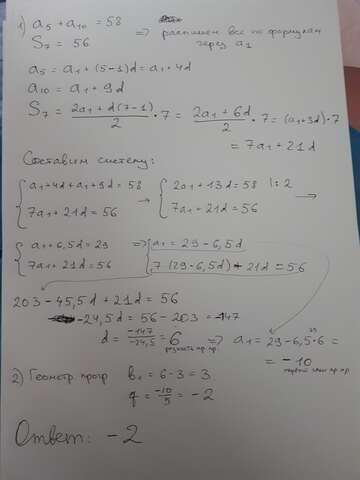 1) a₅ + a₁₀ = 58
S₇ = 56 => распишем все по формулам
через a₁
a₅ = a₁ + (5-1)d = a₁ · 4d
a₁₀ = a₁ + 9d
S₇ = (2a₁ + d(7-1))/2 · 7 = (2a₁ + 6d)/2 · 7 = (a₁+3d) · 7
= 7a₁ + 21d
Составим систему:
{ a₁+4d+a₁+9d = 58 → { 2a₁ + 13d = 58 |: 2 →
7a₁ + 21d = 56 7a₁ + 21d = 56
{ a₁ + 6,5d = 29 => { a₁ = 29 - 6,5d
7a₁ + 21d = 56 7 (29 - 6,5d) + 21d = 56
203 - 45,5d + 21d = 56
-24,5d = 56 - 203 = -147
d = -147/-24,5 = 6 => a₁ = 29 - 6,5·6 =
разность ар. пр.
39
= -10
первый член ар. пр.
2) Геометр. прогр b₁ = 6 - 3 = 3
q = -10/5 = -2
Ответ: -2